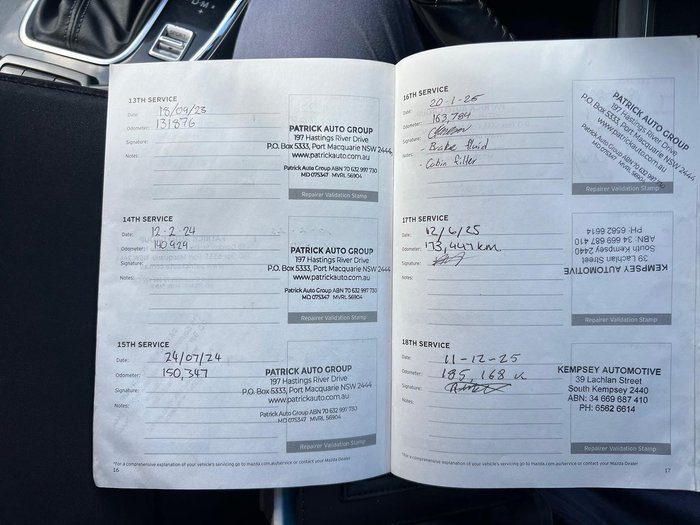 13TH SERVICE
Date: 18/09/23
Odometer: 131876
Signature:
Notes:
PATRICK AUTO GROUP
197 Hastings River Drive
P.O. Box 5333, Port Macquarie NSW 2444
www.patrickauto.com.au
Patrick Auto Group ABN 70 632 997 730
MD 075347 MVRL 56904
Repairer Validation Stamp
14TH SERVICE
Date: 12-2-24
Odometer: 140929
Signature:
Notes:
PATRICK AUTO GROUP
197 Hastings River Drive
P.O. Box 5333, Port Macquarie NSW 2444
www.patrickauto.com.au
Patrick Auto Group ABN 70 632 997 730
MD 075347 MVRL 56904
Repairer Validation Stamp
15TH SERVICE
Date: 24/07/24
Odometer: 150,347
Signature:
Notes:
PATRICK AUTO GROUP
197 Hastings River Drive
P.O. Box 5333, Port Macquarie NSW 2444
www.patrickauto.com.au
Patrick Auto Group ABN 70 632 997 730
MD 075347 MVRL 56904
Repairer Validation Stamp
*For a comprehensive explanation of your vehicle's servicing go to mazda.com.au/service or contact your Mazda Dealer
16
16TH SERVICE
Date: 20-1-25
Odometer: 163,784
Signature:
Notes: - Brake fluid
- Cabin filter
PATRICK AUTO GROUP
197 Hastings River Drive
P.O. Box 5333, Port Macquarie NSW 2444
www.patrickauto.com.au
Patrick Auto Group ABN 70 632 997 730
MD 075347 MVRL 56904
Repairer Validation Stamp
17TH SERVICE
Date: 12/6/25
Odometer: 173,447 km
Signature:
Notes:
KEMPSEY AUTOMOTIVE
39 Lachlan Street
South Kempsey 2440
ABN: 34 669 687 410
PH: 6562 6614
Repairer Validation Stamp
18TH SERVICE
Date: 11-12-25
Odometer: 185,168 k
Signature:
Notes:
KEMPSEY AUTOMOTIVE
39 Lachlan Street
South Kempsey 2440
ABN: 34 669 687 410
PH: 6562 6614
Repairer Validation Stamp
*For a comprehensive explanation of your vehicle's servicing go to mazda.com.au/service or contact your Mazda Dealer
17